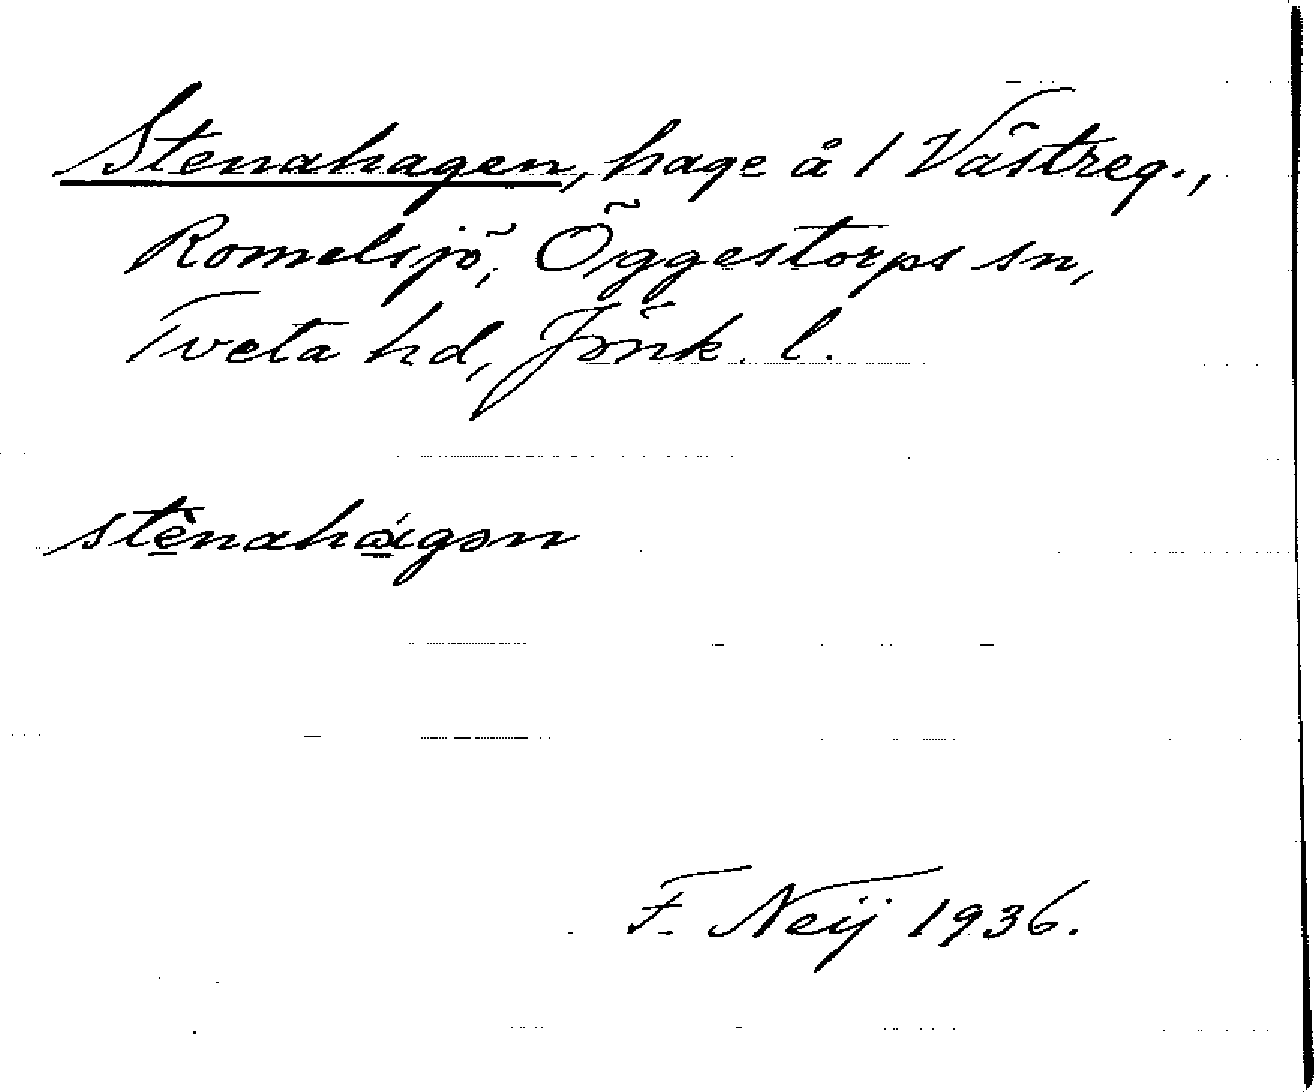 Stenahagen, hage å 1 Västreg.,
Romelsjö, Öggestorps sn,
Tveta hd, Jönk. l.
stènahágən
F. Neij 1936.